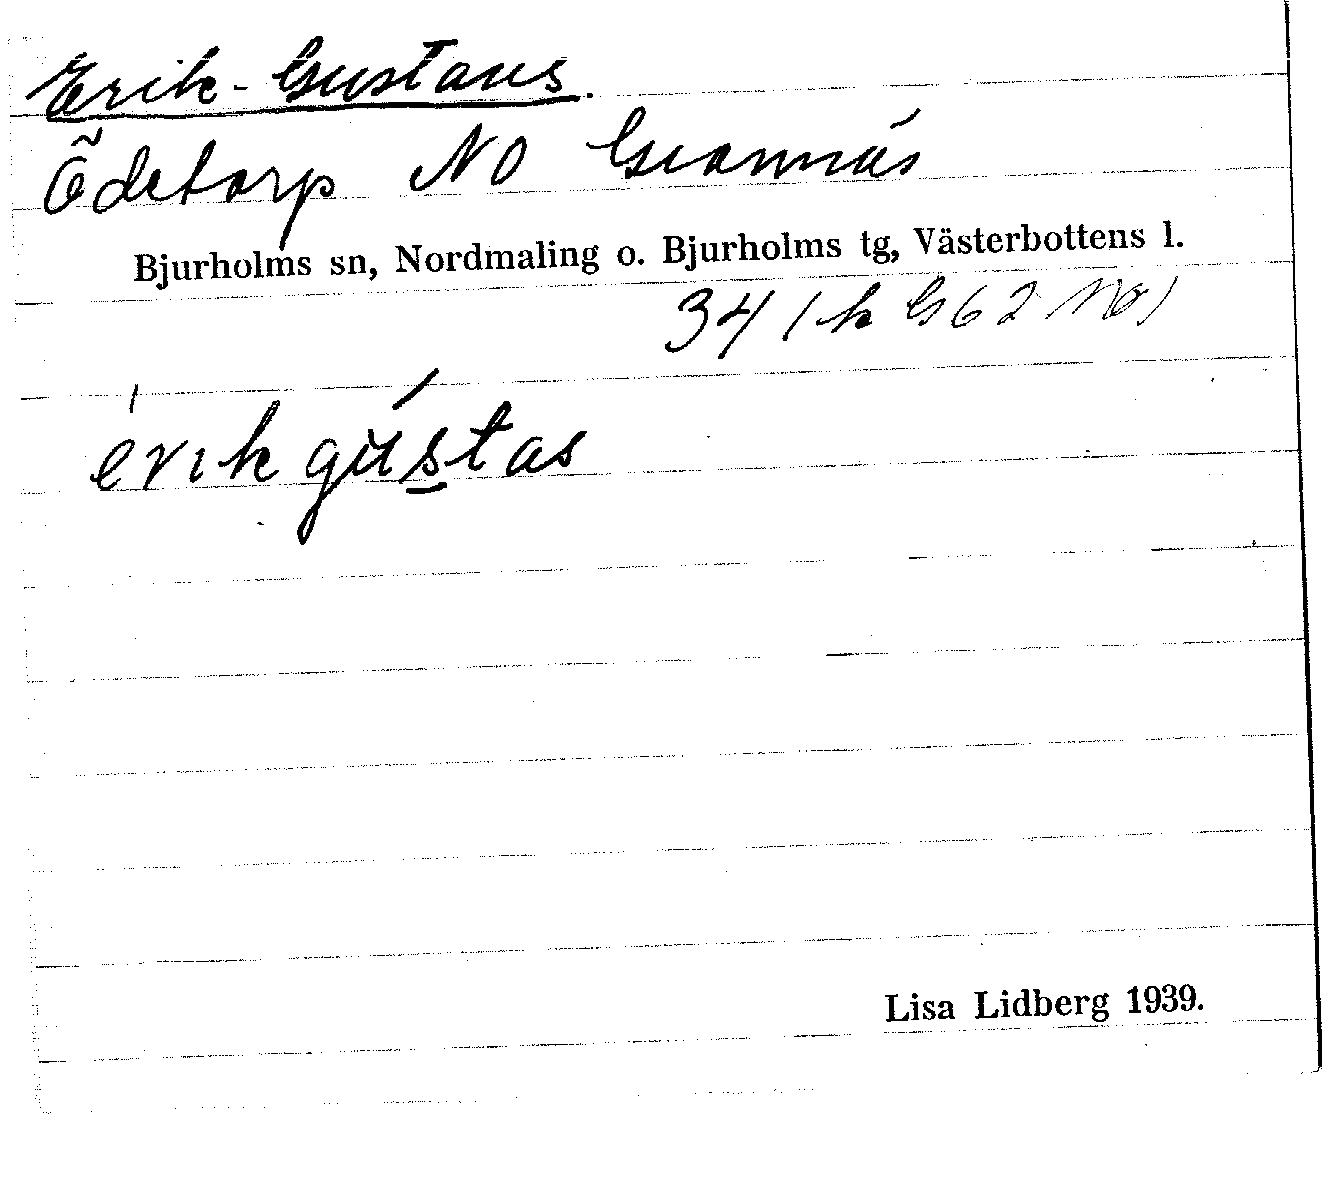 Erik-Gustavs.
Ödetorp NO Grannäs
Bjurholms sn, Nordmaling o. Bjurholms tg, Västerbottens l.
34 1 k G 62
érik gústas
Lisa Lidberg 1939.